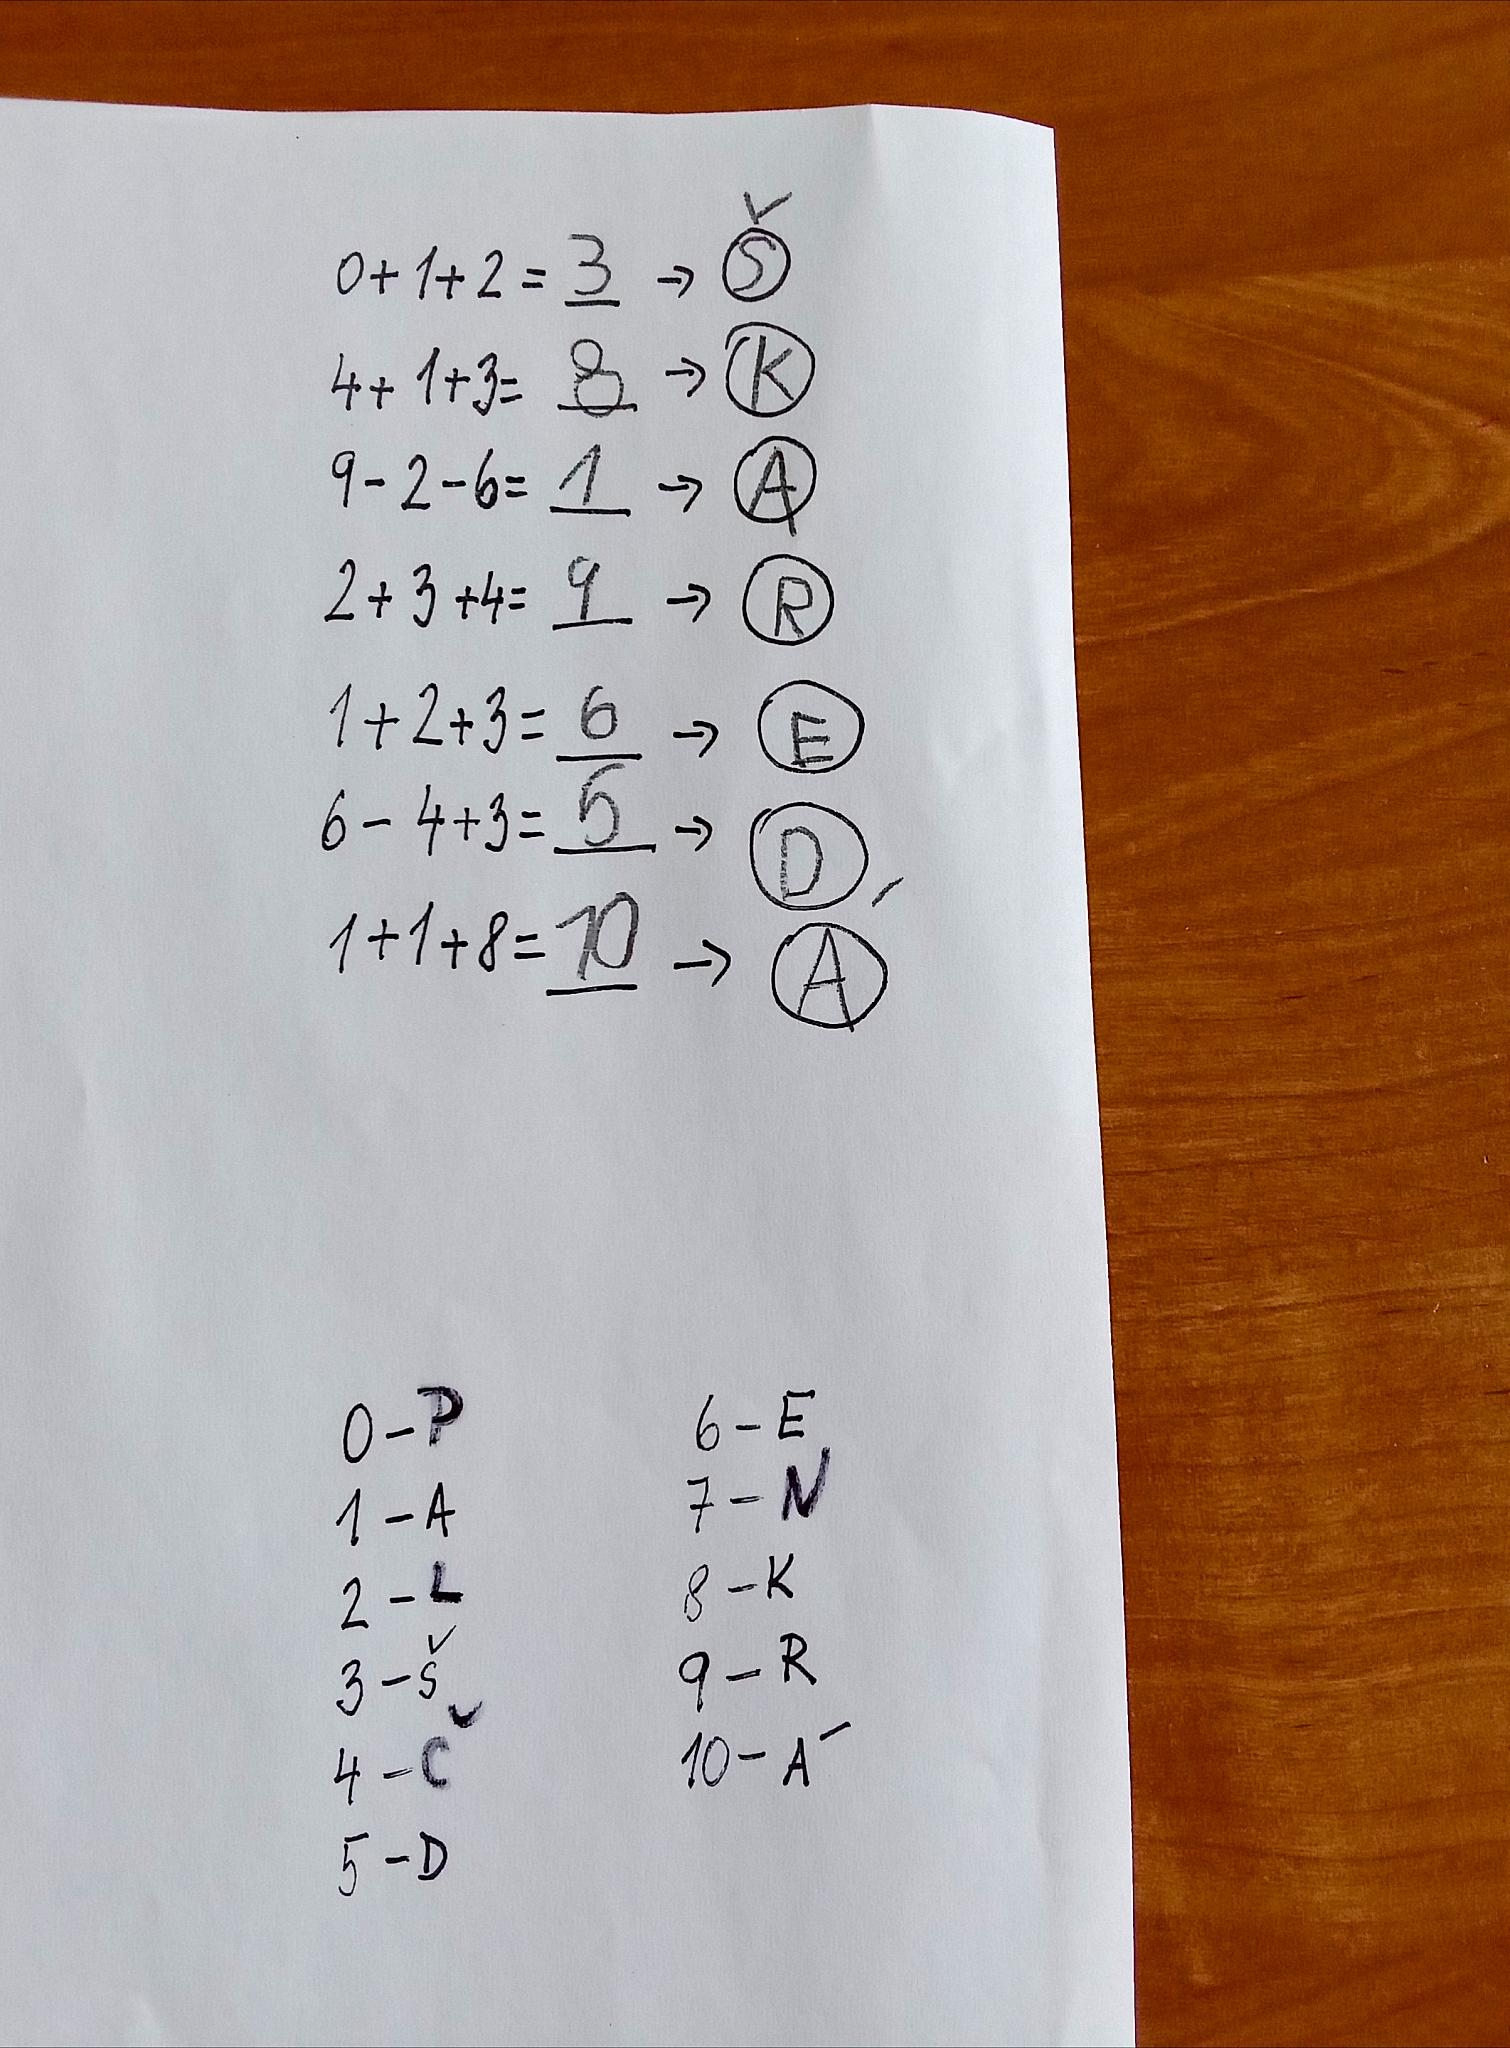 0+1+2=3→Š
4+1+3=8→K
9-2-6=1→A
2+3+4=9→R
1+2+3=6→E
6-4+3=5→D
1+1+8=10→Á
0-P
1-A
2-L
3-Š
4-Č
5-D
6-E
7-N
8-K
9-R
10-Á